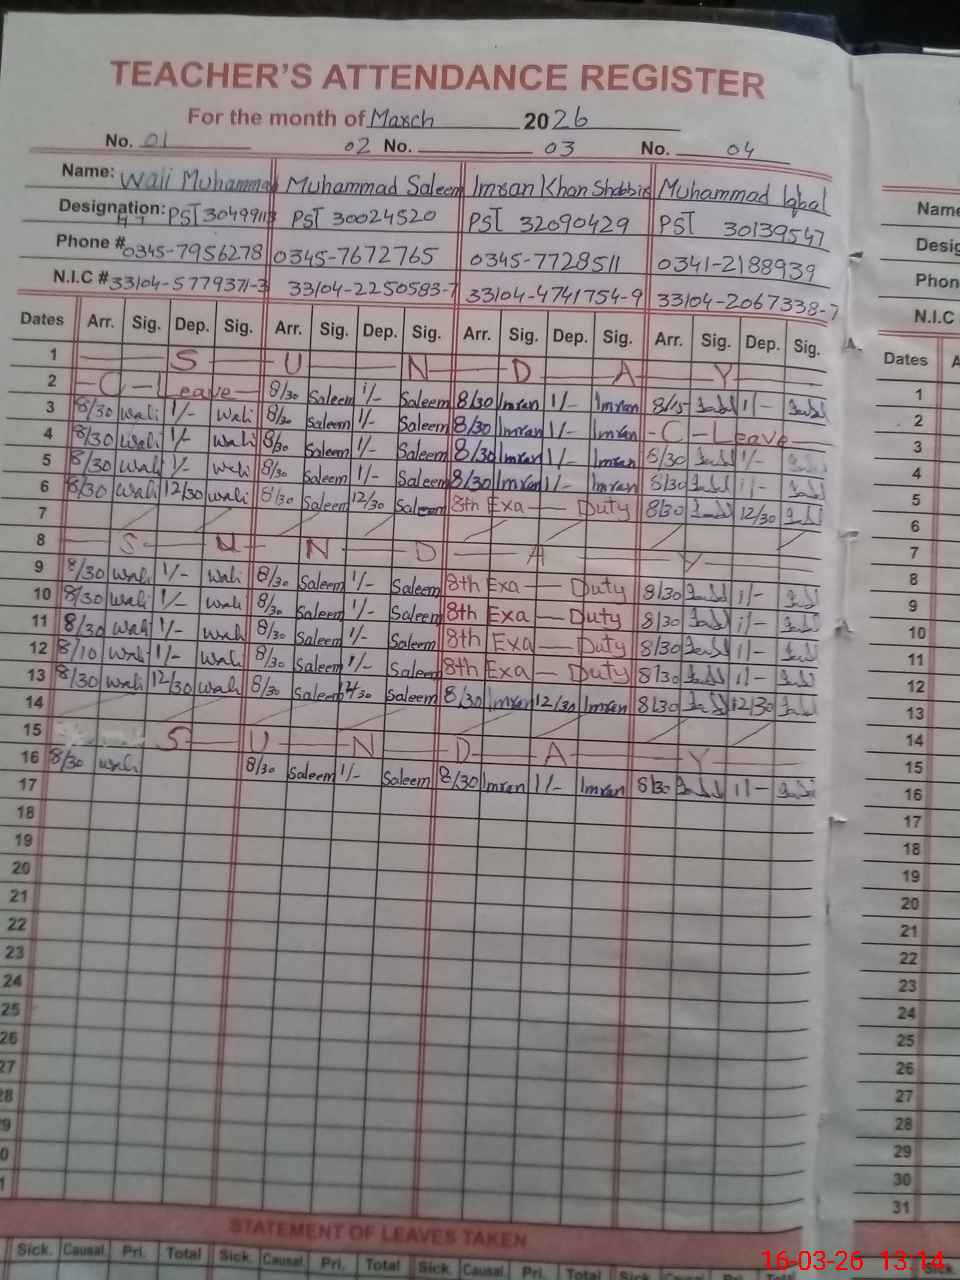 TEACHER'S ATTENDANCE REGISTER
For the month of March 2026
No. 01 02 No. 03 No. 04
Name: Wali Muhammad Muhammad Saleem Imran Khan Shabbir Muhammad Iqbal
Designation: PST 30499113 PST 30024520 PST 32090429 PST 30139547
Phone # 0345-7956278 0345-7672765 0345-7728511 0341-2188939
N.I.C # 33104-5779371-3 33104-2250583-7 33104-4741754-9 33104-2067338-7
Dates Arr. Sig. Dep. Sig. Arr. Sig. Dep. Sig. Arr. Sig. Dep. Sig. Arr. Sig. Dep. Sig.
1 S U N D A Y
2 C-Leave 8/30 Saleem 1/- Saleem 8/30 Imran 1/- Imran 8/15 1/-
3 8/30 Wali 1/- Wali 8/30 Saleem 1/- Saleem 8/30 Imran 1/- Imran -C-Leave-
4 8/30 Wali 1/- Wali 8/30 Saleem 1/- Saleem 8/30 Imran 1/- Imran 8/30 1/-
5 8/30 Wali 1/- Wali 8/30 Saleem 1/- Saleem 8/30 Imran 1/- Imran 8/30 1/-
6 8/30 Wali 12/30 Wali 8/30 Saleem 12/30 Saleem 8th Exa — Duty 8/30 12/30
7
8 S U N D A Y
9 8/30 Wali 1/- Wali 8/30 Saleem 1/- Saleem 8th Exa — Duty 8/30 1/-
10 8/30 Wali 1/- Wali 8/30 Saleem 1/- Saleem 8th Exa — Duty 8/30 1/-
11 8/30 Wali 1/- Wali 8/30 Saleem 1/- Saleem 8th Exa — Duty 8/30 1/-
12 8/10 Wali 1/- Wali 8/30 Saleem 1/- Saleem 8th Exa — Duty 8/30 1/-
13 8/30 Wali 12/30 Wali 8/30 Saleem 12/30 Saleem 8/30 Imran 12/30 Imran 8/30 12/30
14
15 S U N D A Y
16 8/30 Wali 8/30 Saleem 1/- Saleem 8/30 Imran 1/- Imran 8/30 1/-
17
18
19
20
21
22
23
24
25
26
27
28
9
0
1
STATEMENT OF LEAVES TAKEN
Sick. Causal. Pri. Total Sick. Causal. Pri. Total Sick. Causal. Pri. Total Sick.
Name
Desig
Phon
N.I.C
Dates A
1
2
3
4
5
6
7
8
9
10
11
12
13
14
15
16
17
18
19
20
21
22
23
24
25
26
27
28
29
30
31
Sick.
16-03-26 13:14